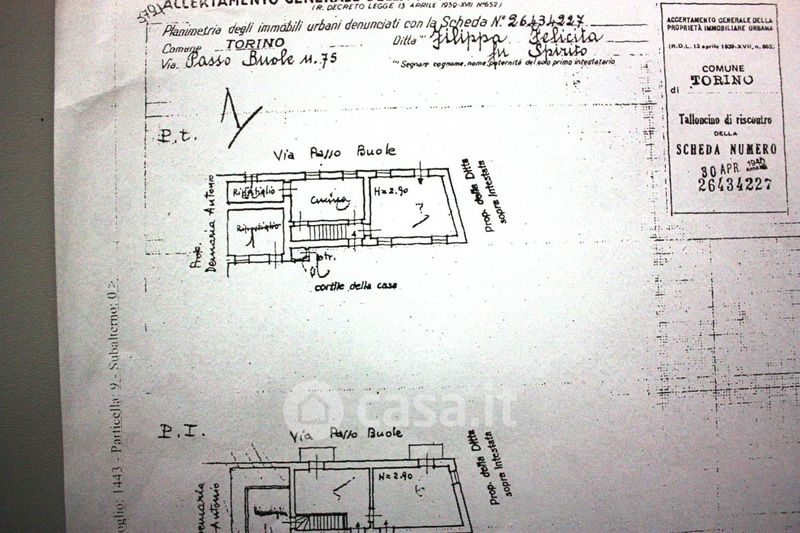 ACCERTAMENTO GENERALE
(R. DECRETO LEGGE 13 APRILE 1939-XVII Nº652)
Planimetria degli immobili urbani denunciati con la Scheda Nº 26434227
Comune TORINO Ditta Filippa Felicita
fu Spirito
Via Passo Buole n. 75
Segnare cognome, nome, paternità del solo primo intestatario
ACCERTAMENTO GENERALE DELLA
PROPRIETÀ IMMOBILIARE URBANA
(R.D.L. 13 aprile 1939-XVII, n. 652)
COMUNE
di TORINO
Talloncino di riscontro
DELLA
SCHEDA NUMERO
30 APR. 1940
26434227
P.t.
Via Passo Buole
Ripostiglio
Cucina
H=2.90
Ripostiglio
Prop.
Demaria Antonio
prop. della Ditta
sopra Intestata
cortile della casa
Foglio: 1443 - Particella: 9 - Subalterno: 0 >
casa.it
P.I.
Via Passo Buole
H=2.90
Demaria
Antonio
prop. della Ditta
sopra Intestata